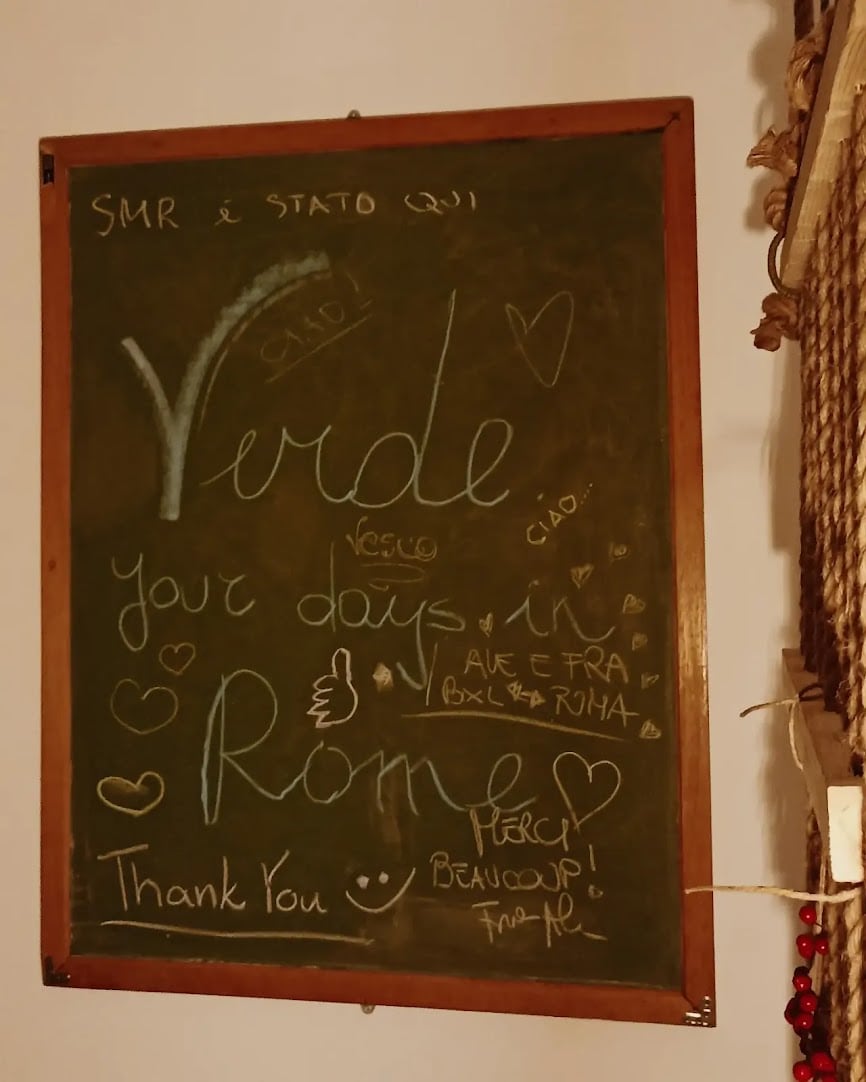 SMR è STATO QUI
CIAO!
Verde
CIAO...
Vesuo
your days in
ALE E FRA
BXL ↔ ROMA
Rome
MERCI
BEAUCOUP!
Thank You
Fra-Ale